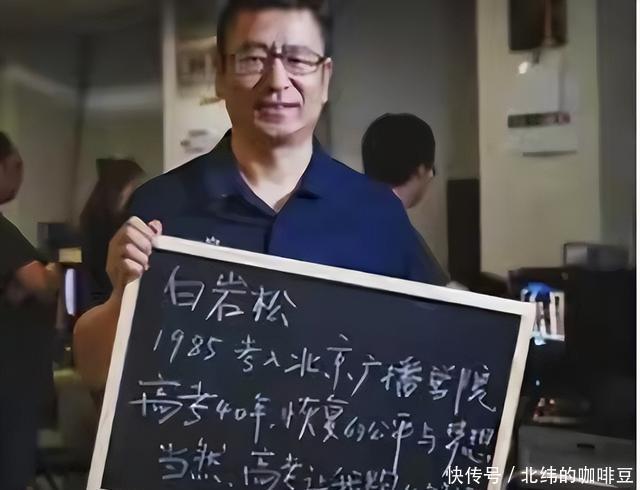 白岩松
1985考入北京广播学院
高考40年,恢复的公平与梦想
当然,高考让我
快传号/北纬的咖啡豆